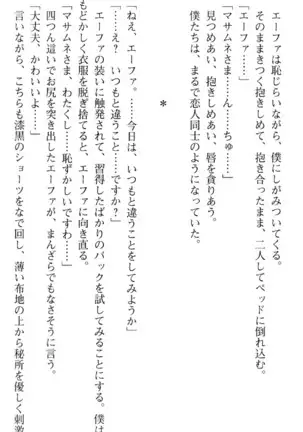 エーファは恥じらいながら、僕にしがみついてくる。
そのままきつく抱きしめて、抱き合ったまま、二人してベッドに倒れ込む。
「エーファ……」
「マサムネさま……ん……ちゅ……」
見つめあい、抱きしめあい、唇を貪りあう。
僕たちは、まるで恋人同士のようになっていた。
*
「ねえ、エーファ。……今日は、いつもと違うことをしてみようか」
「……え？　いつもと違うこと……ですか？」
エーファの装いに触発されて、習得したばかりのバックを試してみることにする。僕は
もどかしく衣服を脱ぎ捨てると、エーファに向き直る。
「マサムネさま、わたくし……恥ずかしいですわ……」
四つん這いでお尻を突き出したエーファが、まんざらでもなさそうに言う。
「大丈夫、かわいいよ……」
言いながら、こちらも漆黒のショーツをなで回し、薄い布地の上から秘所を優しく刺激